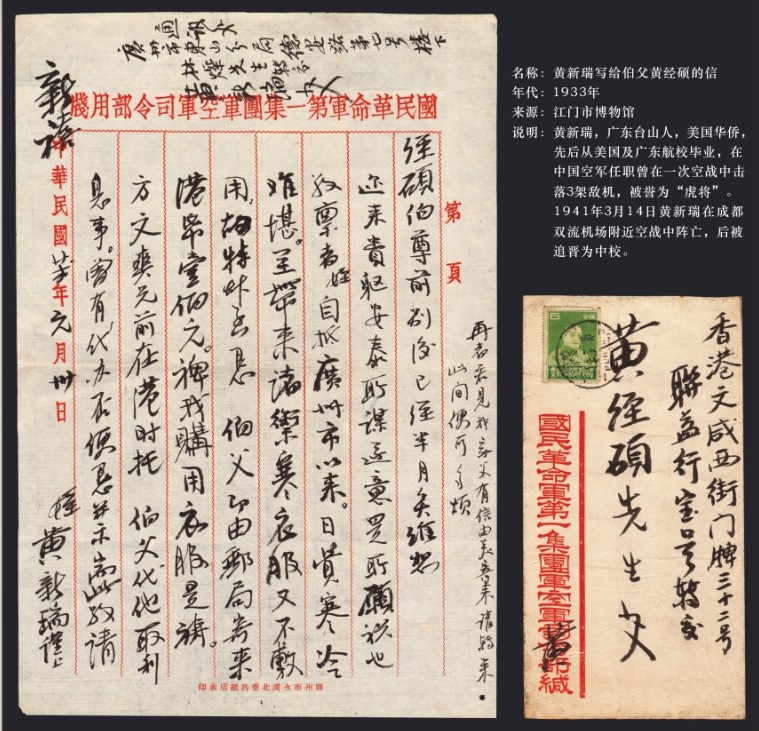 通訊处
廣州市東山分局德安路第七号楼下
林燦先生轉交
黄新瑞收
國民革命軍第一集團軍空軍司令部用牋
第 頁
經碩伯尊前别後已經半月矣維想
近来貴躯安泰所謀遂意是所願祝也
敬禀者姪自抵廣州市以来日貫寒冷
难堪至帶来諸禦寒衣服又不敷
用故特草函恳 伯父即由郵局寄来
港幣壹佰元俾我購用衣服是禱
方文奕兄前在港时托 伯父代他取利
息事曾有代办否便恳并示耑此敬請
新禧
姪黄新瑞谨上
中華民國廿二年元月卅日
再者未見我家父有信由美寄来請轉来
此间便可多煩
廣州市永漢北 昌紙店承印
名称：黄新瑞写给伯父黄经硕的信
年代：1933年
来源：江门市博物馆
说明：黄新瑞，广东台山人，美国华侨，
先后从美国及广东航校毕业，在
中国空军任职曾在一次空战中击
落3架敌机，被誉为“虎将”。
1941年3月14日黄新瑞在成都
双流机场附近空战中阵亡，后被
追晋为中校。
香港文咸西街门牌三十二号
聯益行宝号轉交
黄經碩先生收
國民革命軍第一集團軍空軍司令部緘
黄